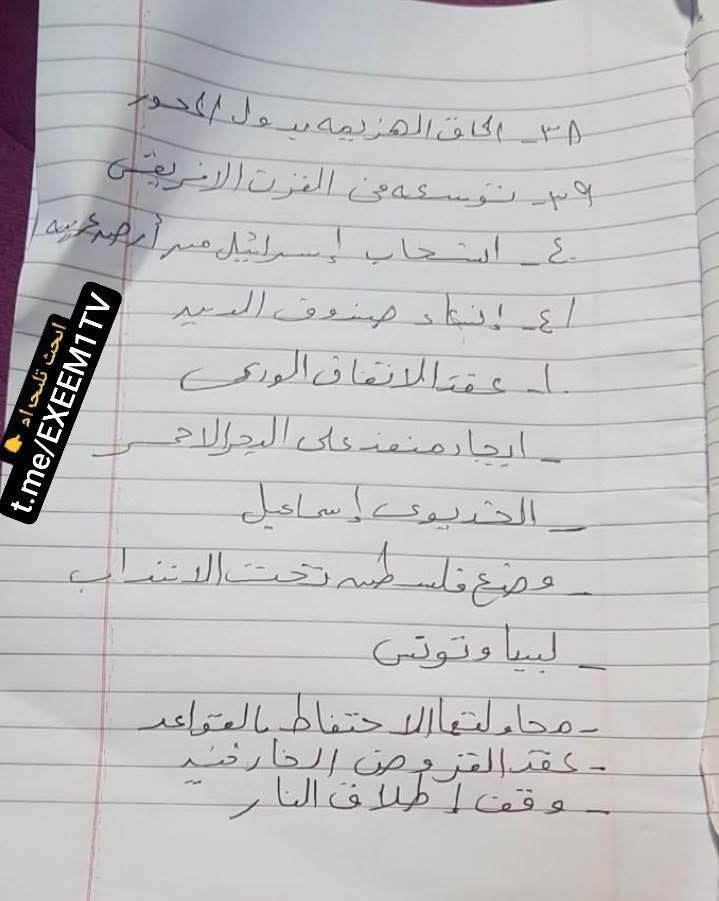 ٣٨- الحاق الهزيمه بدول المحور
٣٩- توسعه في القرن الافريقى
٤٠- انسحاب إسرائيل من أرض عربيه
٤١- إنشاء صندوق الدين
١- عقد الاتفاق الودى
- ايجاد منفذ على البحر الاحمر
- الخديوى إسماعيل
- وضع فلسطين تحت الانتداب
- ليبيا وتونس
- محاولتها الاحتفاظ بالقواعد
- عقد القروض الخارجيه
- وقف إطلاق النار
ابحث تليجرام
t.me/EXEEM1TV